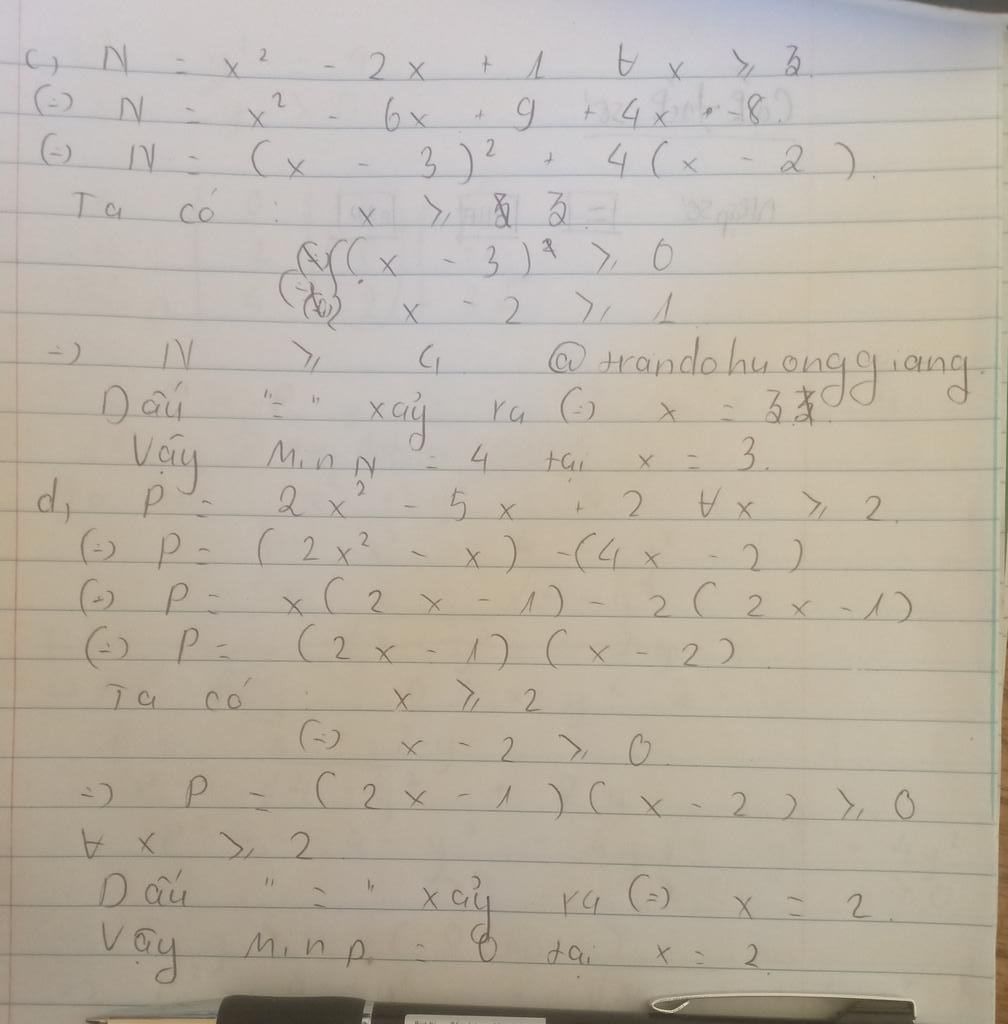 c, N = x² - 2x + 1 ∀ x ⩾ 3.
(=) N = x² - 6x + 9 + 4x - 8.
(=) N = (x - 3)² + 4(x - 2).
Ta có : x ⩾ 3
(x - 3)² ⩾ 0
x - 2 ⩾ 1
=) N ⩾ 4 @trandohuonggiang.
Dấu "=" xảy ra (=) x = 3.
Vậy Min N = 4 tại x = 3.
d, P = 2x² - 5x + 2 ∀ x ⩾ 2.
(=) P = (2x² - x) - (4x - 2)
(=) P = x(2x - 1) - 2(2x - 1)
(=) P = (2x - 1)(x - 2)
Ta có : x ⩾ 2
(=) x - 2 ⩾ 0
=) P = (2x - 1)(x - 2) ⩾ 0
∀ x ⩾ 2
Dấu "=" xảy ra (=) x = 2.
Vậy Min P = 0 tại x = 2.